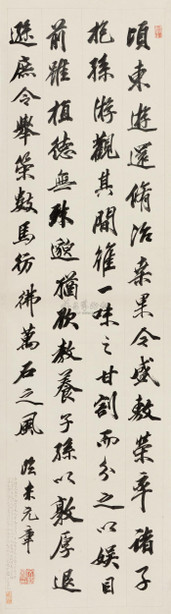 頃東遊還脩治桑果今盛敷榮率諸子
抱孫游觀其間一味之甘割而分之以娱目
前雖植德無殊邈猶欲教養子孫以敦厚退
遜庶令舉策數馬彷彿萬石之風 臨米元章